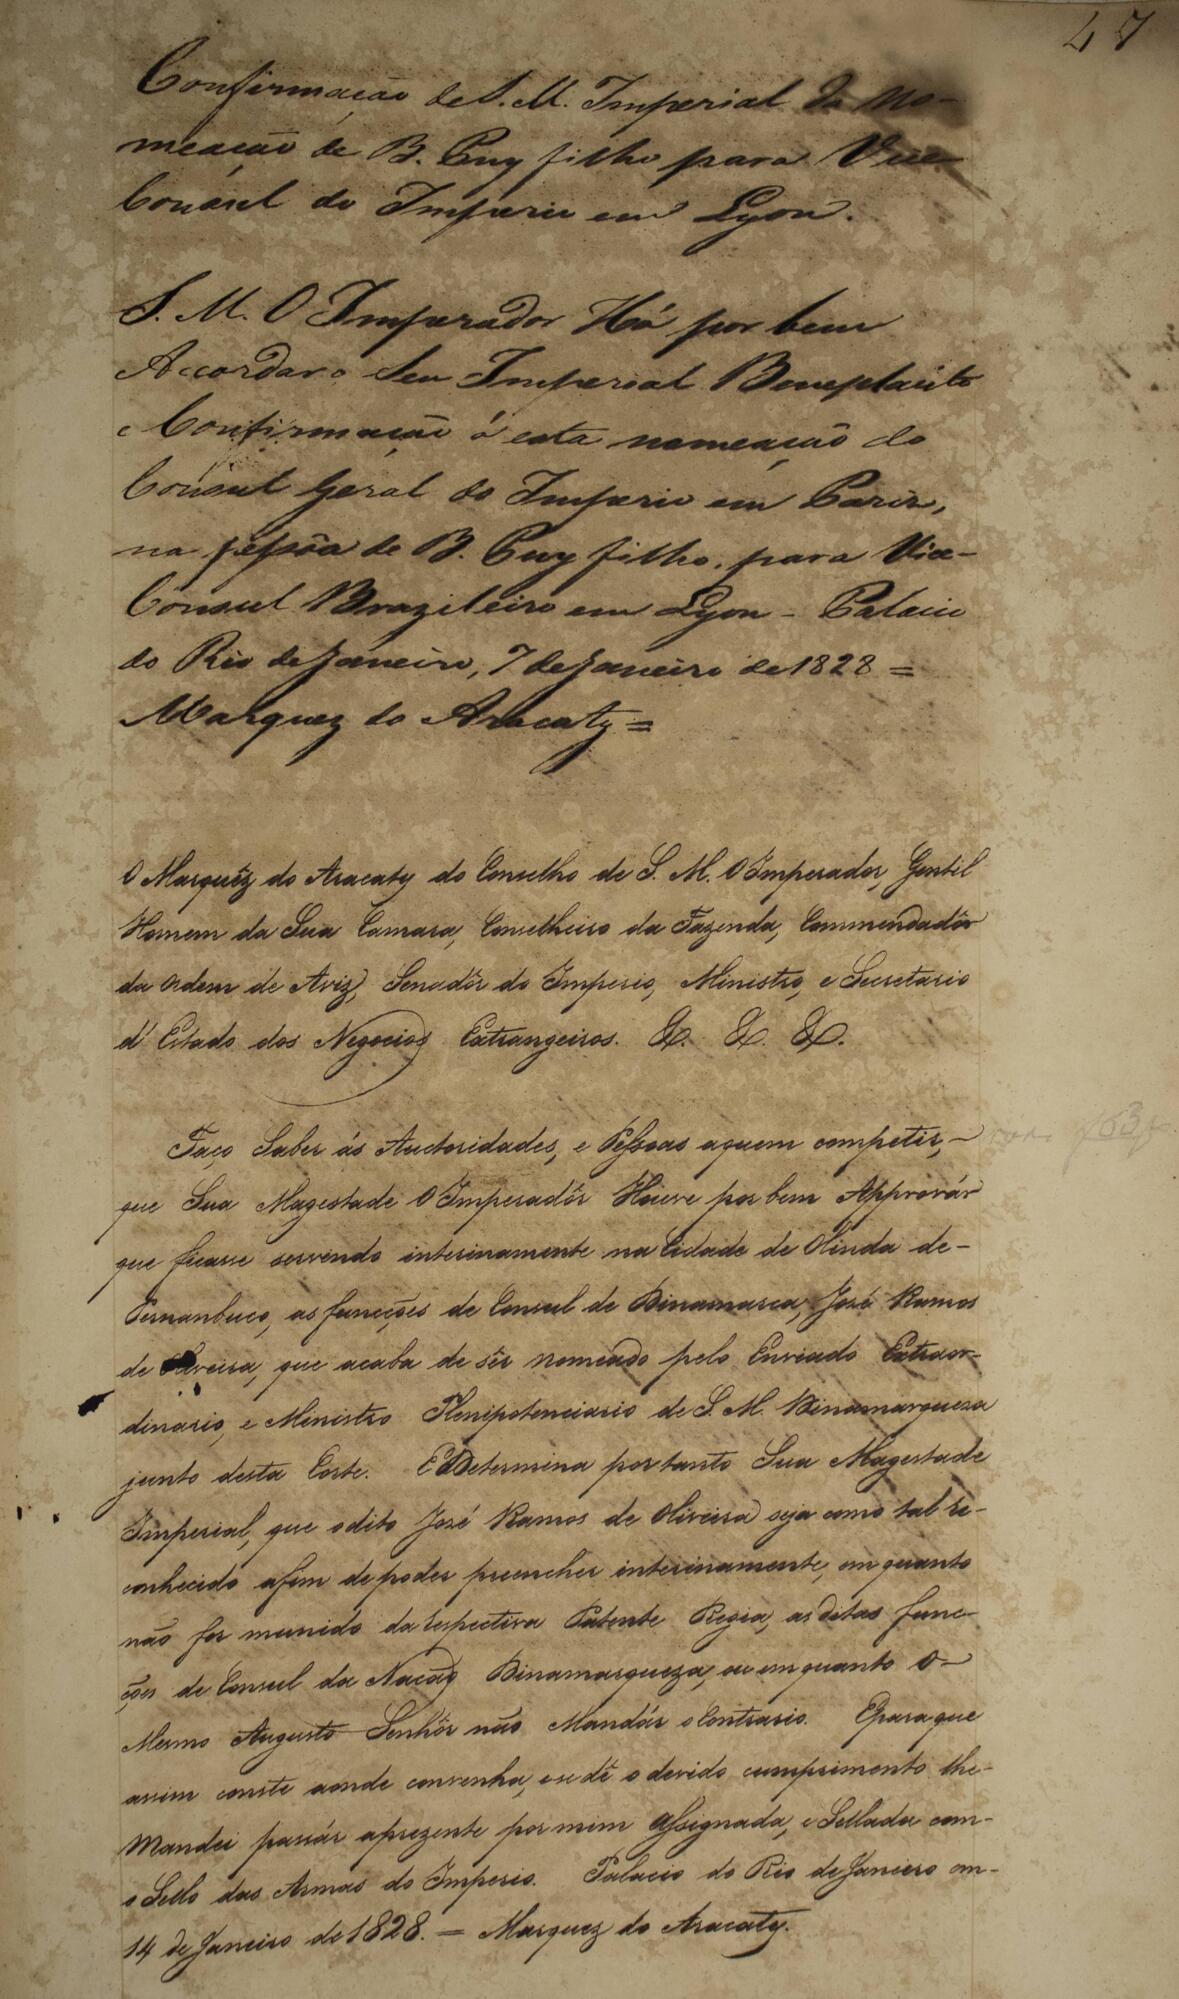 47
Confirmação de S. M. Imperial da No-
meação de B. Puy filho para Vice
Consul do Imperio em Lyon.
S. M. O Imperador Há por bem
Accordar o Seu Imperial Beneplacito
e Confirmação á esta nomeação do
Consul Geral do Imperio em Pariz,
na pessôa de B. Puy filho, para Vice-
Consul Brazileiro em Lyon - Palacio
do Rio de Janeiro, 7 de Janeiro de 1828 =
Marquez do Aracaty =
O Marquêz do Aracaty do Conselho de S. M. O Imperador, Gentil
Homem da Sua Camara, Conselheiro da Fazenda, Commendadôr
da Ordem de Aviz, Senadôr do Imperio, Ministro, e Secretario
d'Estado dos Negocios Extrangeiros. &. &. &.
Faço Saber ás Auctoridades, e Pessoas aquem competir,-
que Sua Magestade O Imperadôr Houve por bem Approvár
que ficasse servindo interinamente na Cidade de Olinda de-
Pernanbuco, as funcções de Consul de Dinamarca, José Ramos
de Oliveira, que acaba de sêr nomeado pelo Enviado Extraor-
dinario, e Ministro Plenipotenciario de S. M. Dinamarqueza
junto desta Corte. E Determina portanto Sua Magestade
Imperial, que odito José Ramos de Oliveira seja como tal re-
conhecido afim de poder preencher interinamente, em quanto
não for munido da respectiva Patente Regia, as ditas func-
ções de Consul da Nação Dinamarqueza, ou em quanto O-
Mesmo Augusto Senhôr não Mandár o Contrario. Eparaque
assim conste aonde convenha, e se dê o devido cumprimento lhe-
Mandei passár aprezente por mim Assignada, e Sellada com-
o Sello das Armas do Imperio. Palacio do Rio de Janeiro em-
14 de Janeiro de 1828. = Marquez do Aracaty.